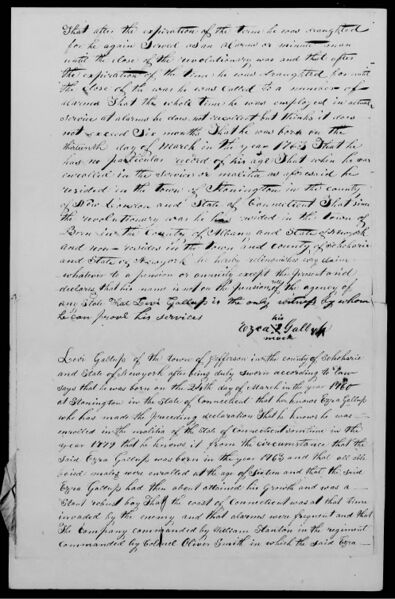 That after the expiration of the term he was draughted
for he again served as an alarm or minute man
until the close of the revolutionary war and that after
the expiration of the time he was draughted for until
the close of the war he was called to a number of
alarms That the whole time he was employed in actual
service at alarms he does not recollect but thinks it does
not exceed Six months That he was born on the
thirteenth day of March in the year 1763 That he
has no particular record of his age That when he was
enrolled in the service or malitia as aforesaid he
resided in the town of Stonington in the county
of New London and State of Connecticut That since
the revolutionary war he has resided in the town of
Bern in the County of Albany and State of Newyork
and now resides in the town and county of Schoharie
and State of Newyork he hereby relinquishes every claim
whatever to a pension or annuity except the present and
declares that his name is not on the pension roll of the agency of
any State That Levi Gallup is the only witness by whom
he can prove his services
his
Ezra Gallup
mark
Levi Gallup of the town of Jefferson in the county of Schoharie
and State of Newyork after being duly sworn according to law
says that he was born on the 24th day of March in the year 1760
at Stonington in the State of Connecticut that he knows Ezra Gallup
who has made the preceding declaration That he knows he was
enrolled in the malitia of the State of Connecticut sometime in the
year 1779 that he knows it from the circumstance that the
said Ezra Gallup was born in the year 1763 and that all able
bodied males were enrolled at the age of Sixteen and that the said
Ezra Gallup had then about attained his growth and was a
Stout robust boy That the coast of Connecticut was at that time
invaded by the enemy and that alarms were frequent and that
The Company commanded by William Stanton in the regiment
commanded by Colonel Oliver Smith in which the said Ezra